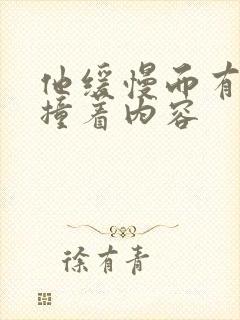 他缓慢而有
撞着内容
徐有青